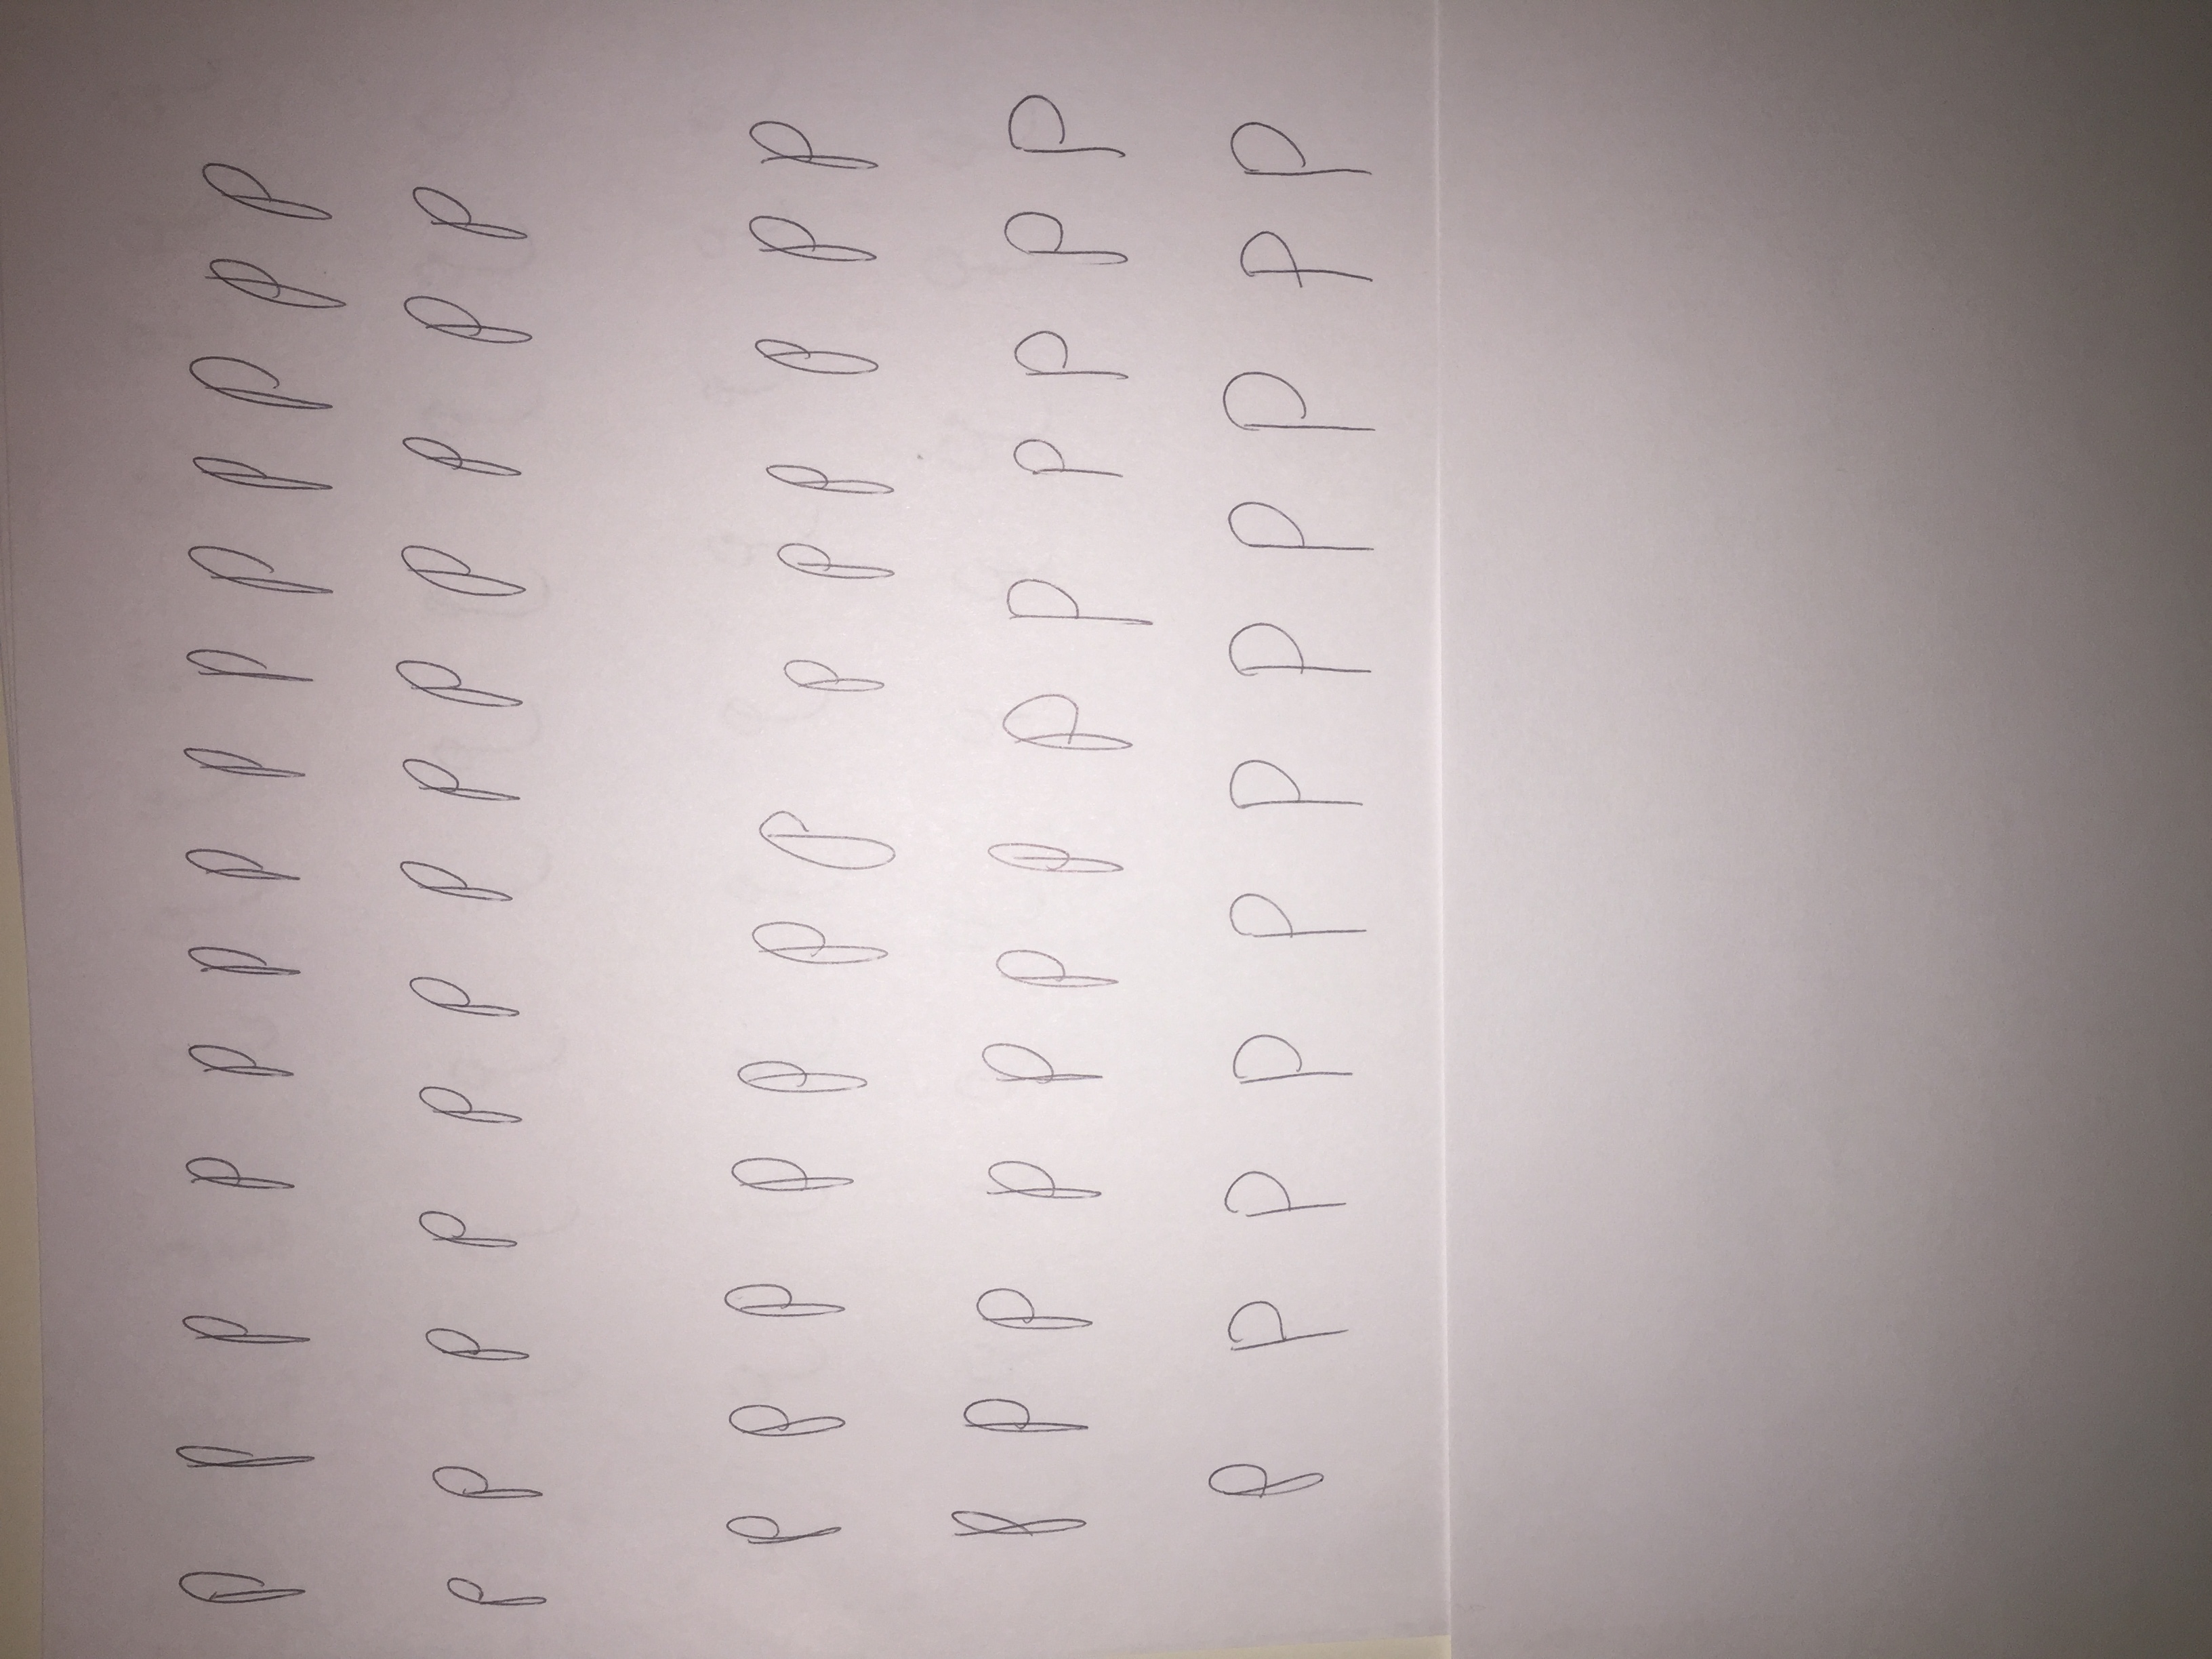 P P P P P P P P P P P P P P
P P P P P P P P P P P P P
P P P P P P P P P P P P P
P P P P P P P P P P P P P
P P P P P P P P P P P